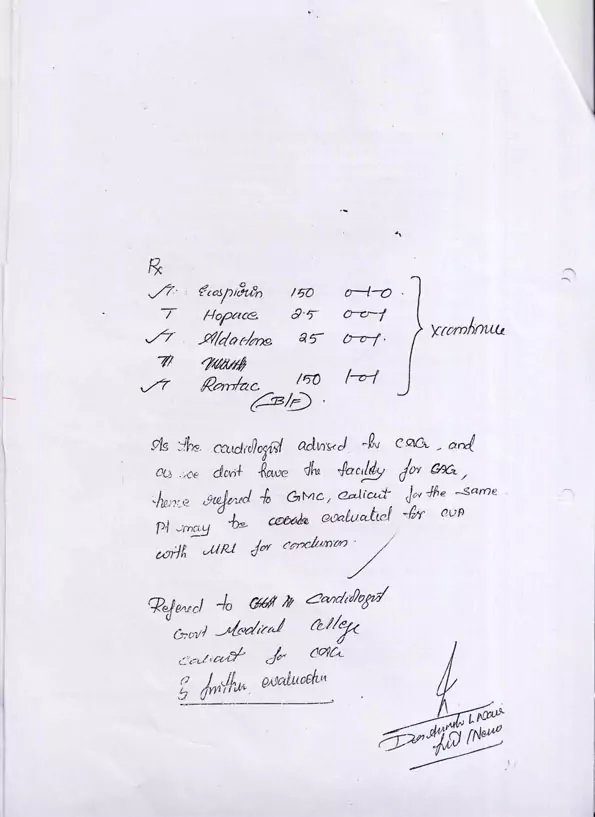 Rx
T. Ecospirin 150 0-1-0.
T Hopace 2.5 0-0-1
T Aldactone 25 0-0-1. x continue
T
T Rantac 150 1-0-1
(B/F).
As the cardiologist advised for CAG, and
as we dont have the facility for CAG,
hence refered to GMC, Calicut for the same.
Pt may be evaluated for CVA
with MRI for conclusion.
Refered to Cardiologist
Govt Medical College
Calicut for CAG
& further evaluation